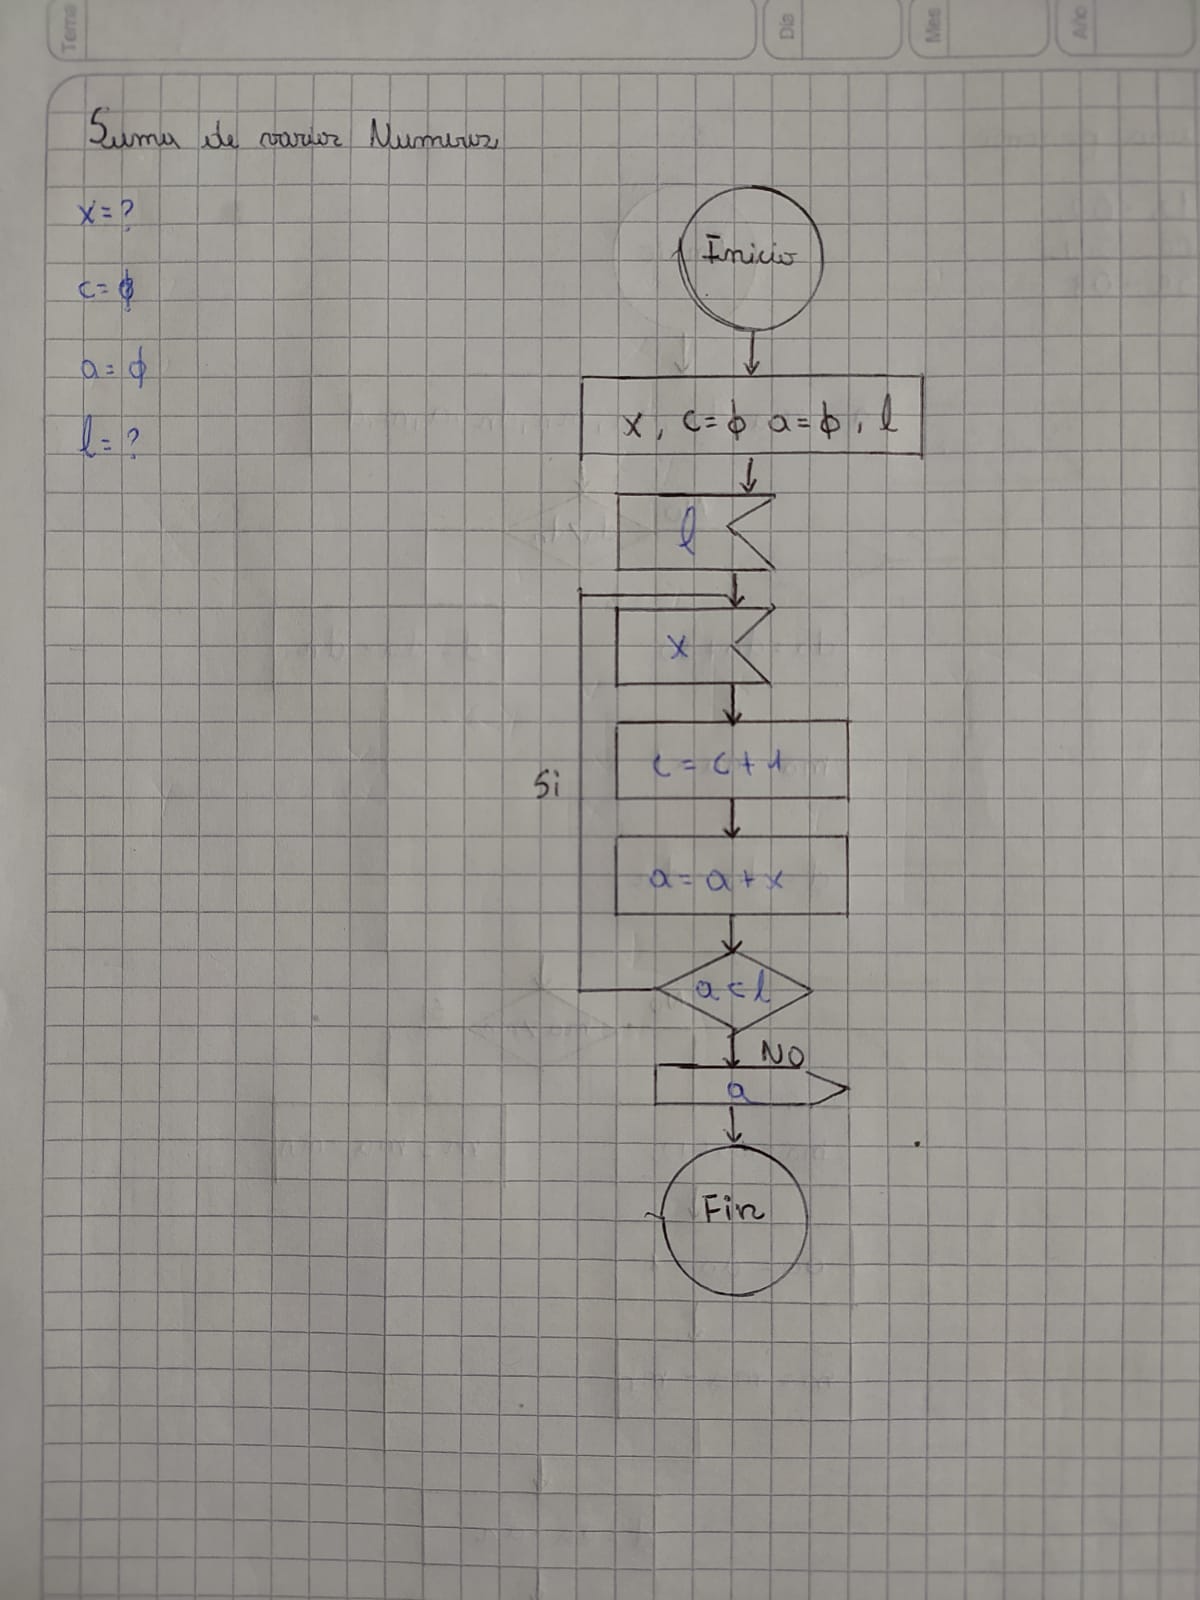 Tema
Dia
Mes
Año
Suma de varios Numeros
x = ?
c = ϕ
a = ϕ
l = ?
Inicio
x, c = ϕ a = ϕ, l
l
x
c = c + 1
Si
a = a + x
a < l
NO
a
Fin